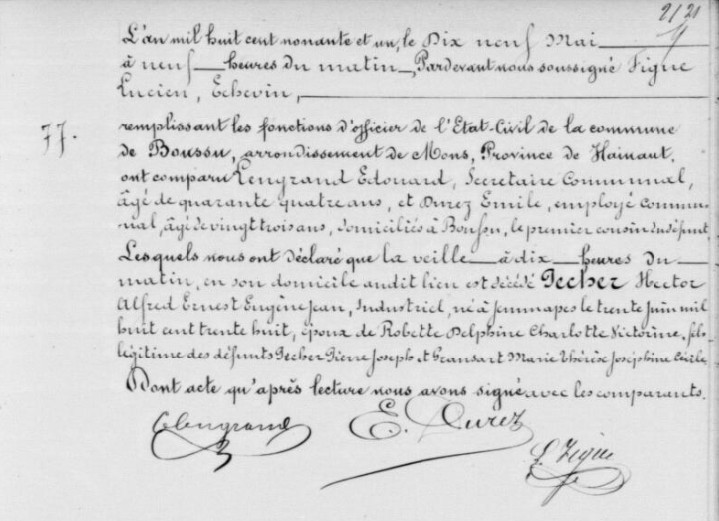 2/21
L'an mil huit cent nonante et un, le Dix neuf Mai
à neuf heures du matin, Pardevant nous soussigné Figue
Lucien, Echevin,
77.
remplissant les fonctions d'officier de l'Etat-Civil de la commune
de Boussu, arrondissement de Mons, Province de Hainaut,
ont comparu Lengrand Edouard, Secrétaire Communal,
âgé de quarante quatre ans, et Durez Emile, employé Commu-
nal, âgé de vingt trois ans, domiciliés à Boussu, le premier cousin du défunt
Lesquels nous ont déclaré que la veille à dix heures du
matin, en son domicile audit lien est décédé Pecher Hector
Alfred Ernest Eugène Jean, Industriel, né à Jemmapes le trente Juin mil
huit cent trente huit, époux de Robette Delphine Charlotte Victorine, fils
légitime des défunts Pecher Pierre Joseph et Gransart Marie Thérèse Joséphine Cécile
Dont acte qu'après lecture nous avons signé avec les comparants.
E. Durez
L. Figue